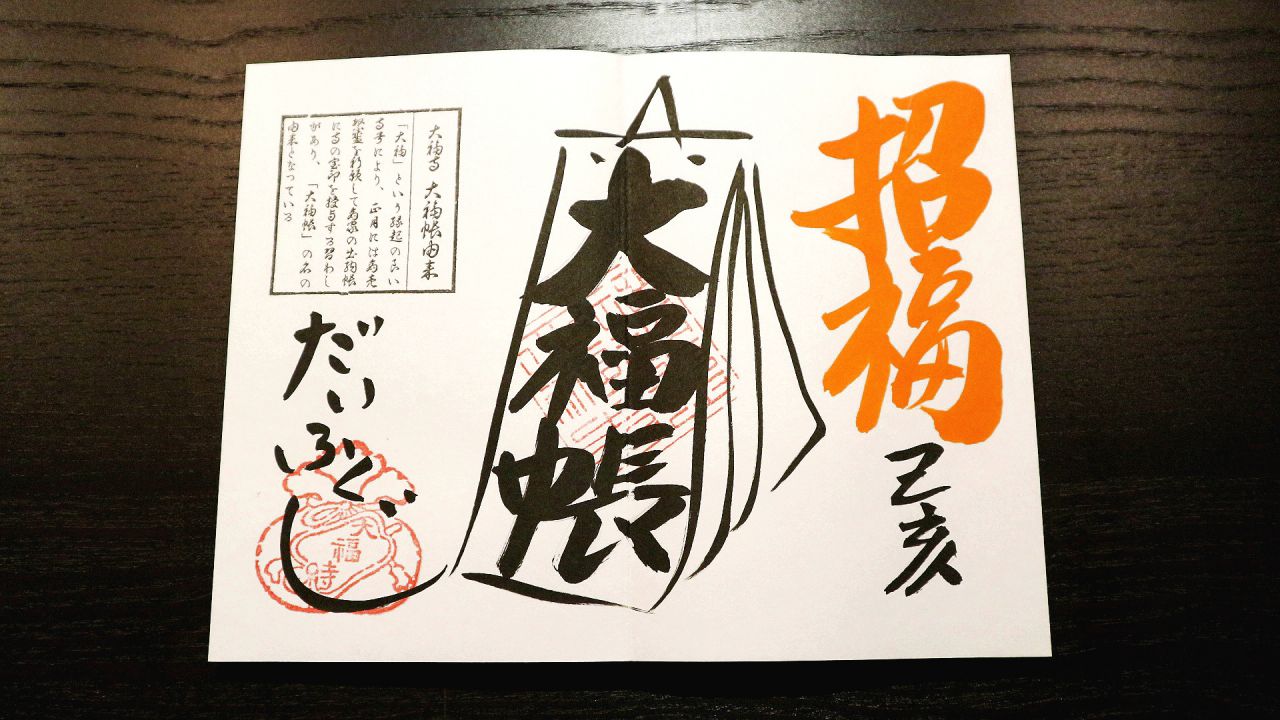 招福
己亥
大福帳
大福寺 大福帳由来
「大福」という縁起の良い
により、正月には商売
繁盛を祈願して商家の出納帳
に寺の宝印を授与する習わし
があり、「大福帳」の名の
由来となっている
だいふくじ
大福